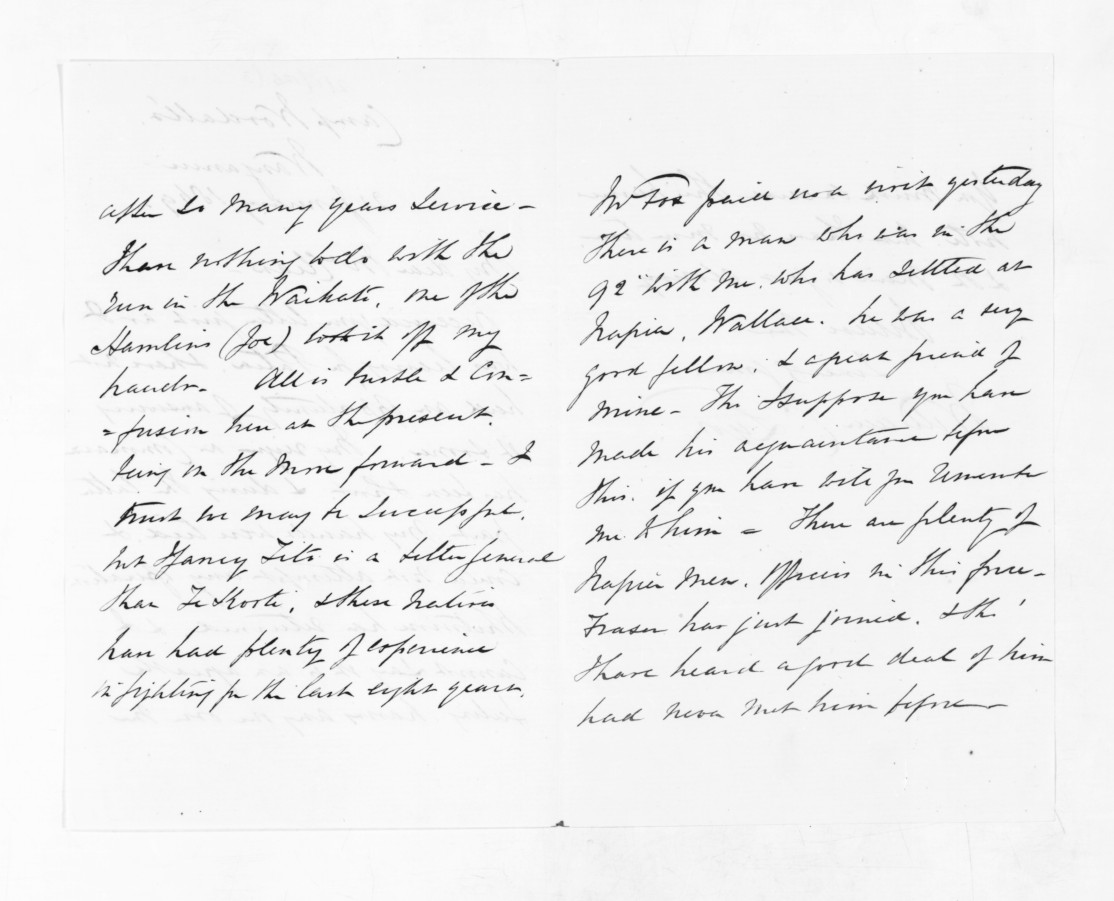 after so many years service -
I have nothing to do with the
run in the Waikato, one of the
Hamlins (Joe) took it off my
hands. All is bustle & Con=
=fusion here at the present.
being on the move forward - I
trust we may be successful,
but I fancy Tito is a better general
than Te Kooti, & these natives
have had plenty of experience
in fighting for the last eight years.
Mr Fox paid us a visit yesterday
There is a man who was in the
92" with me. who has settled at
Napier, Wallace. he was a very
good fellow; & a great friend of
mine - Tho' I suppose you have
made his acquaintance before
this. if you have will you remember
me to him = There are plenty of
Napier men. Officers in this force -
Fraser has just joined. & tho'
I have heard a good deal of him
had never met him before -